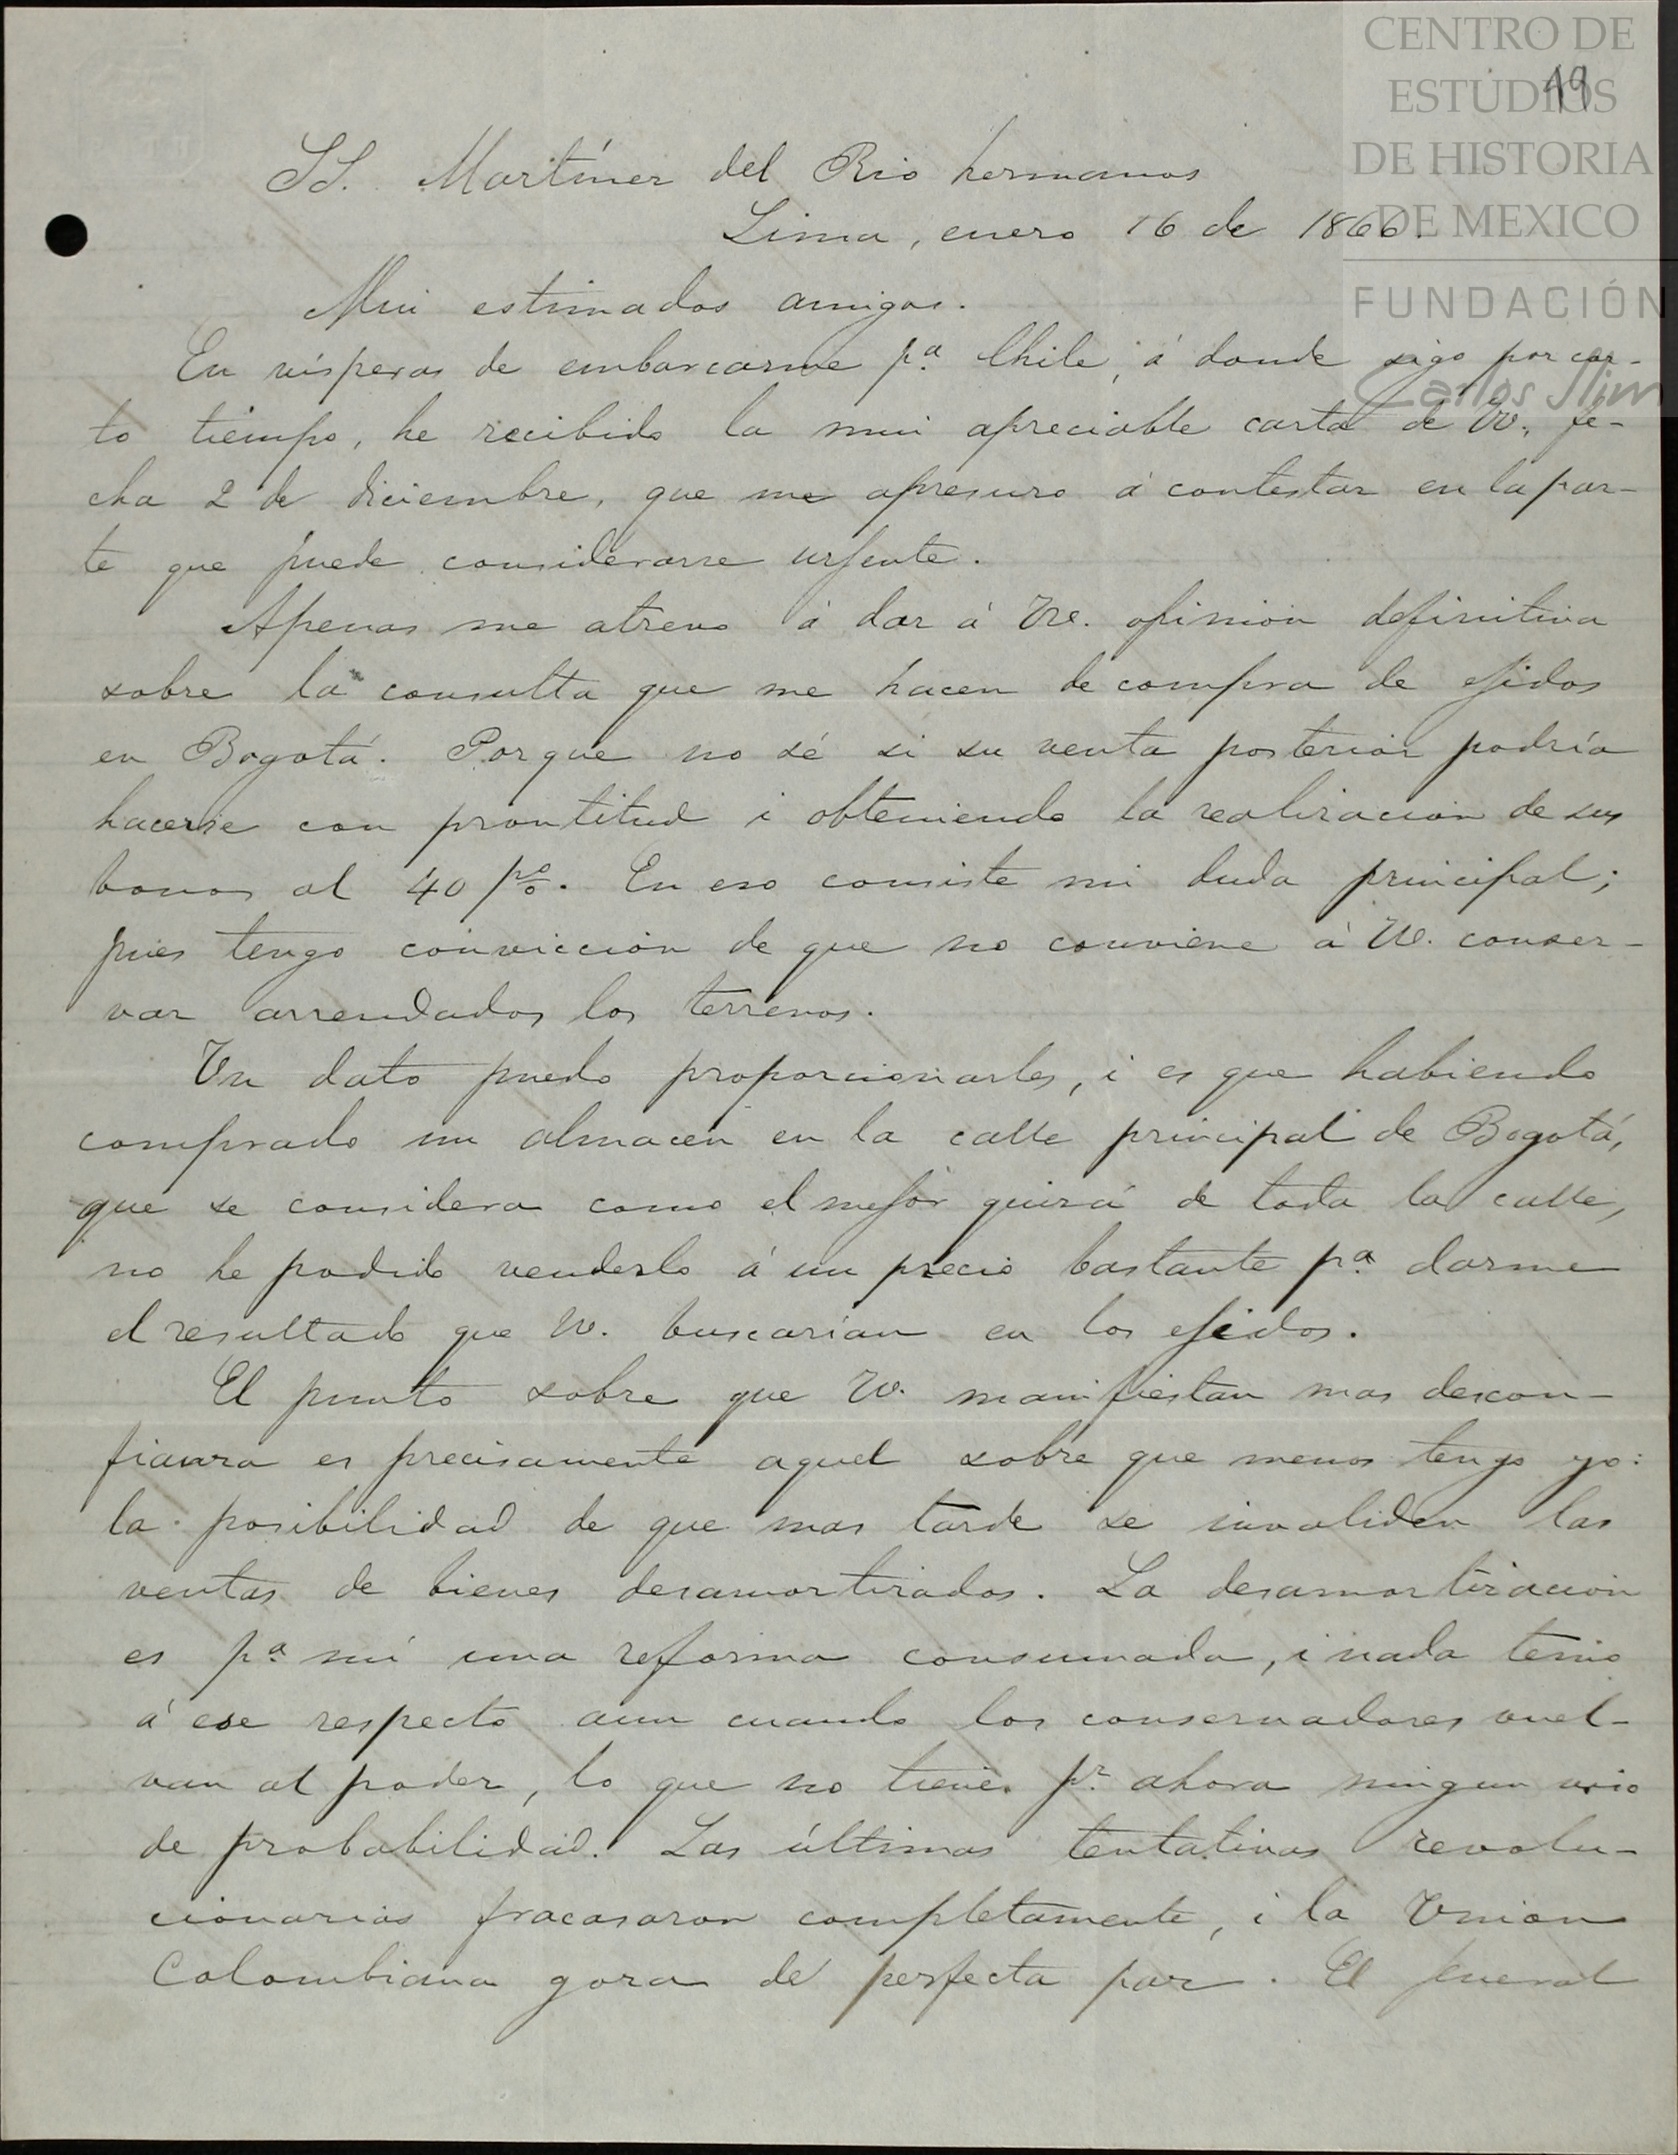 CENTRO DE
ESTUDIOS
DE HISTORIA
DE MEXICO
FUNDACIÓN
Carlos Slim
49
SS. Martínez del Rio hermanos
Lima, enero 16 de 1866.
Mui estimados amigos.
En vísperas de embarcarme pª Chile, á donde sigo por cor-
to tiempo, he recibido la mui apreciable carta de VV., fe-
cha 2 de diciembre, que me apresuro á contestar en la par-
te que puede considerarse urjente.
Apenas me atrevo á dar á VV. opinion definitiva
sobre la consulta que me hacen de compra de ejidos
en Bogotá. Porque no sé si su venta posterior podría
hacerse con prontitud i obteniendo la realizacion de sus
bonos al 40 p%. En eso consiste mi duda principal;
pues tengo conviccion de que no conviene á VV. conser-
var arrendados los terrenos.
Un dato puedo proporcionarles, i es que habiendo
comprado un almacen en la calle principal de Bogotá,
que se considera como el mejor quizá de toda la calle,
no he podido venderlo á un precio bastante pª darme
el resultado que VV. buscarían en los ejidos.
El punto sobre que VV. manifiestan mas descon-
fianza es precisamente aquel sobre que menos tengo yo:
la posibilidad de que mas tarde se invaliden las
ventas de bienes desamortizados. La desamortizacion
es pª mí una reforma consumada, i nada temo
á ese respecto aun cuando los conservadores vuel-
van al poder, lo que no tiene pr ahora ningun viso
de probabilidad. Las últimas tentativas revolu-
cionarias fracasaron completamente, i la Union
Colombiana goza de perfecta paz. El jeneral